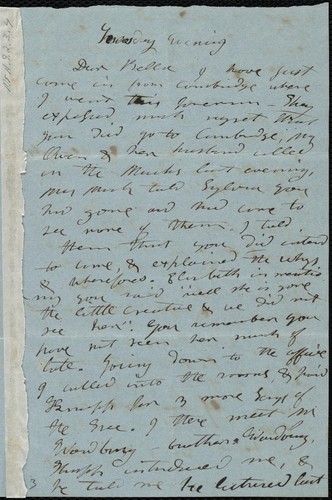 Tuesday Evening
Dear Bella I have just
come in from Cambridge where
I went this forenoon - They
expressed much regret that
you did go to Cambridge, Mrs
& her husband called
on the Marshs last evening,
Mrs Marsh told Sylvia you
had gone and had come to
see none of them. I told
them that you did intend
to come & explained the whys,
& wherefores. Elizabeth in mentio
ning you said "well she is gone
the little creature & we did not
see her". You remember you
have not seen her much of
late. Going down to the office
I called into the rooms & paid
Knapp for 3 more days of
the Gree. I there meet Mr
Woodbury - brothers Woodbury,
Knapp introduced me, &
he told me he lectured last